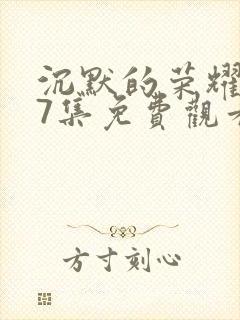 沉默的荣耀
7集免費觀
方寸刻心